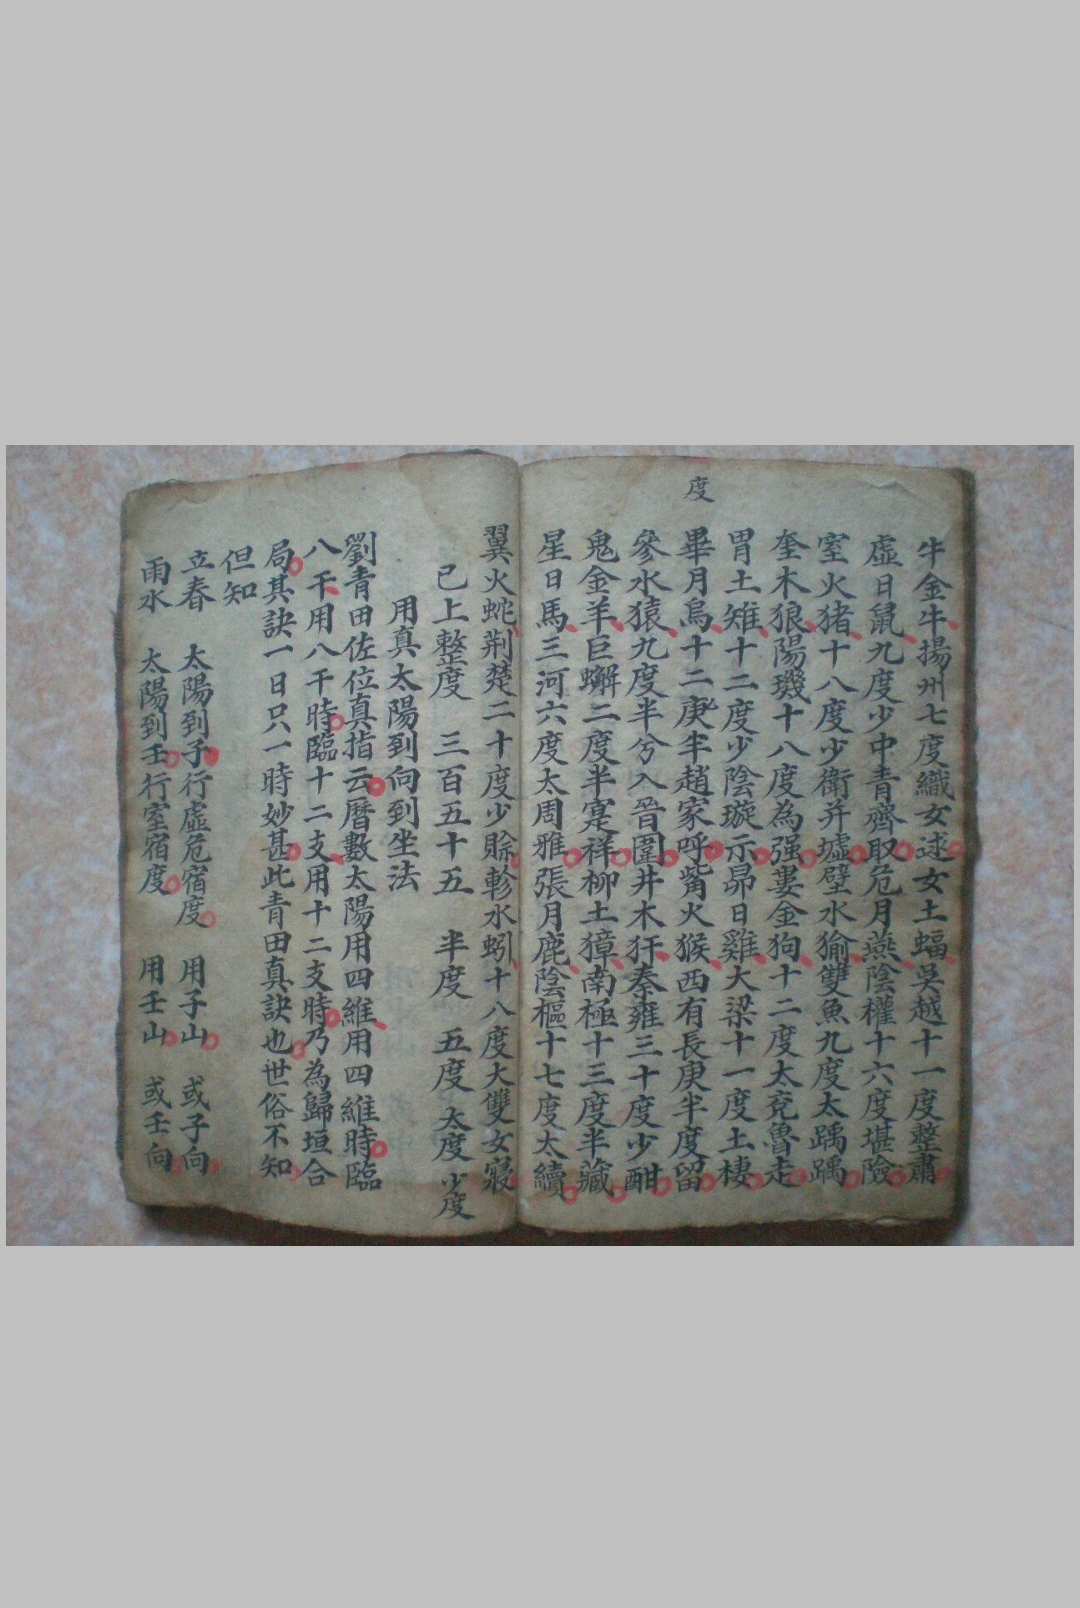 度
牛金牛揚州七度織女逑女土蝠吳越十一度整肅
虛日鼠九度少中青齊取危月燕陰權十六度堪險
室火猪十八度少衛并墟壁水㺄雙魚九度太踽踽
奎木狼陽璣十八度為强婁金狗十二度太兗魯走
胃土雉十二度少陰璇示昴日雞大梁十一度土棲
畢月烏十二庚半趙家呼觜火猴西有長庚半度留
參水猿九度半兮入晉圍井木犴秦雍三十度少酣
鬼金羊巨蠏二度半寔祥柳土獐南極十三度半藏
星日馬三河六度太周雅張月鹿陰樞十七度太續
翼火蛇荆楚二十度少賒軫水蚓十八度大雙女寢
已上整度 三百五十五 半度 五度 太度 少度
用真太陽到向到坐法
劉青田佐位真指云曆數太陽用四維用四維時臨
八干用八干時臨十二支用十二支時乃為歸垣合
局其訣一日只一時妙甚此青田真訣也世俗不知
但知
立春 太陽到子行虛危宿度 用子山 或子向
雨水 太陽到壬行室宿度 用壬山 或壬向